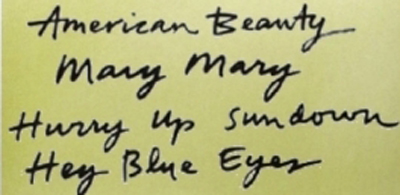 American Beauty
Mary Mary
Hurry Up Sundown
Hey Blue Eyes